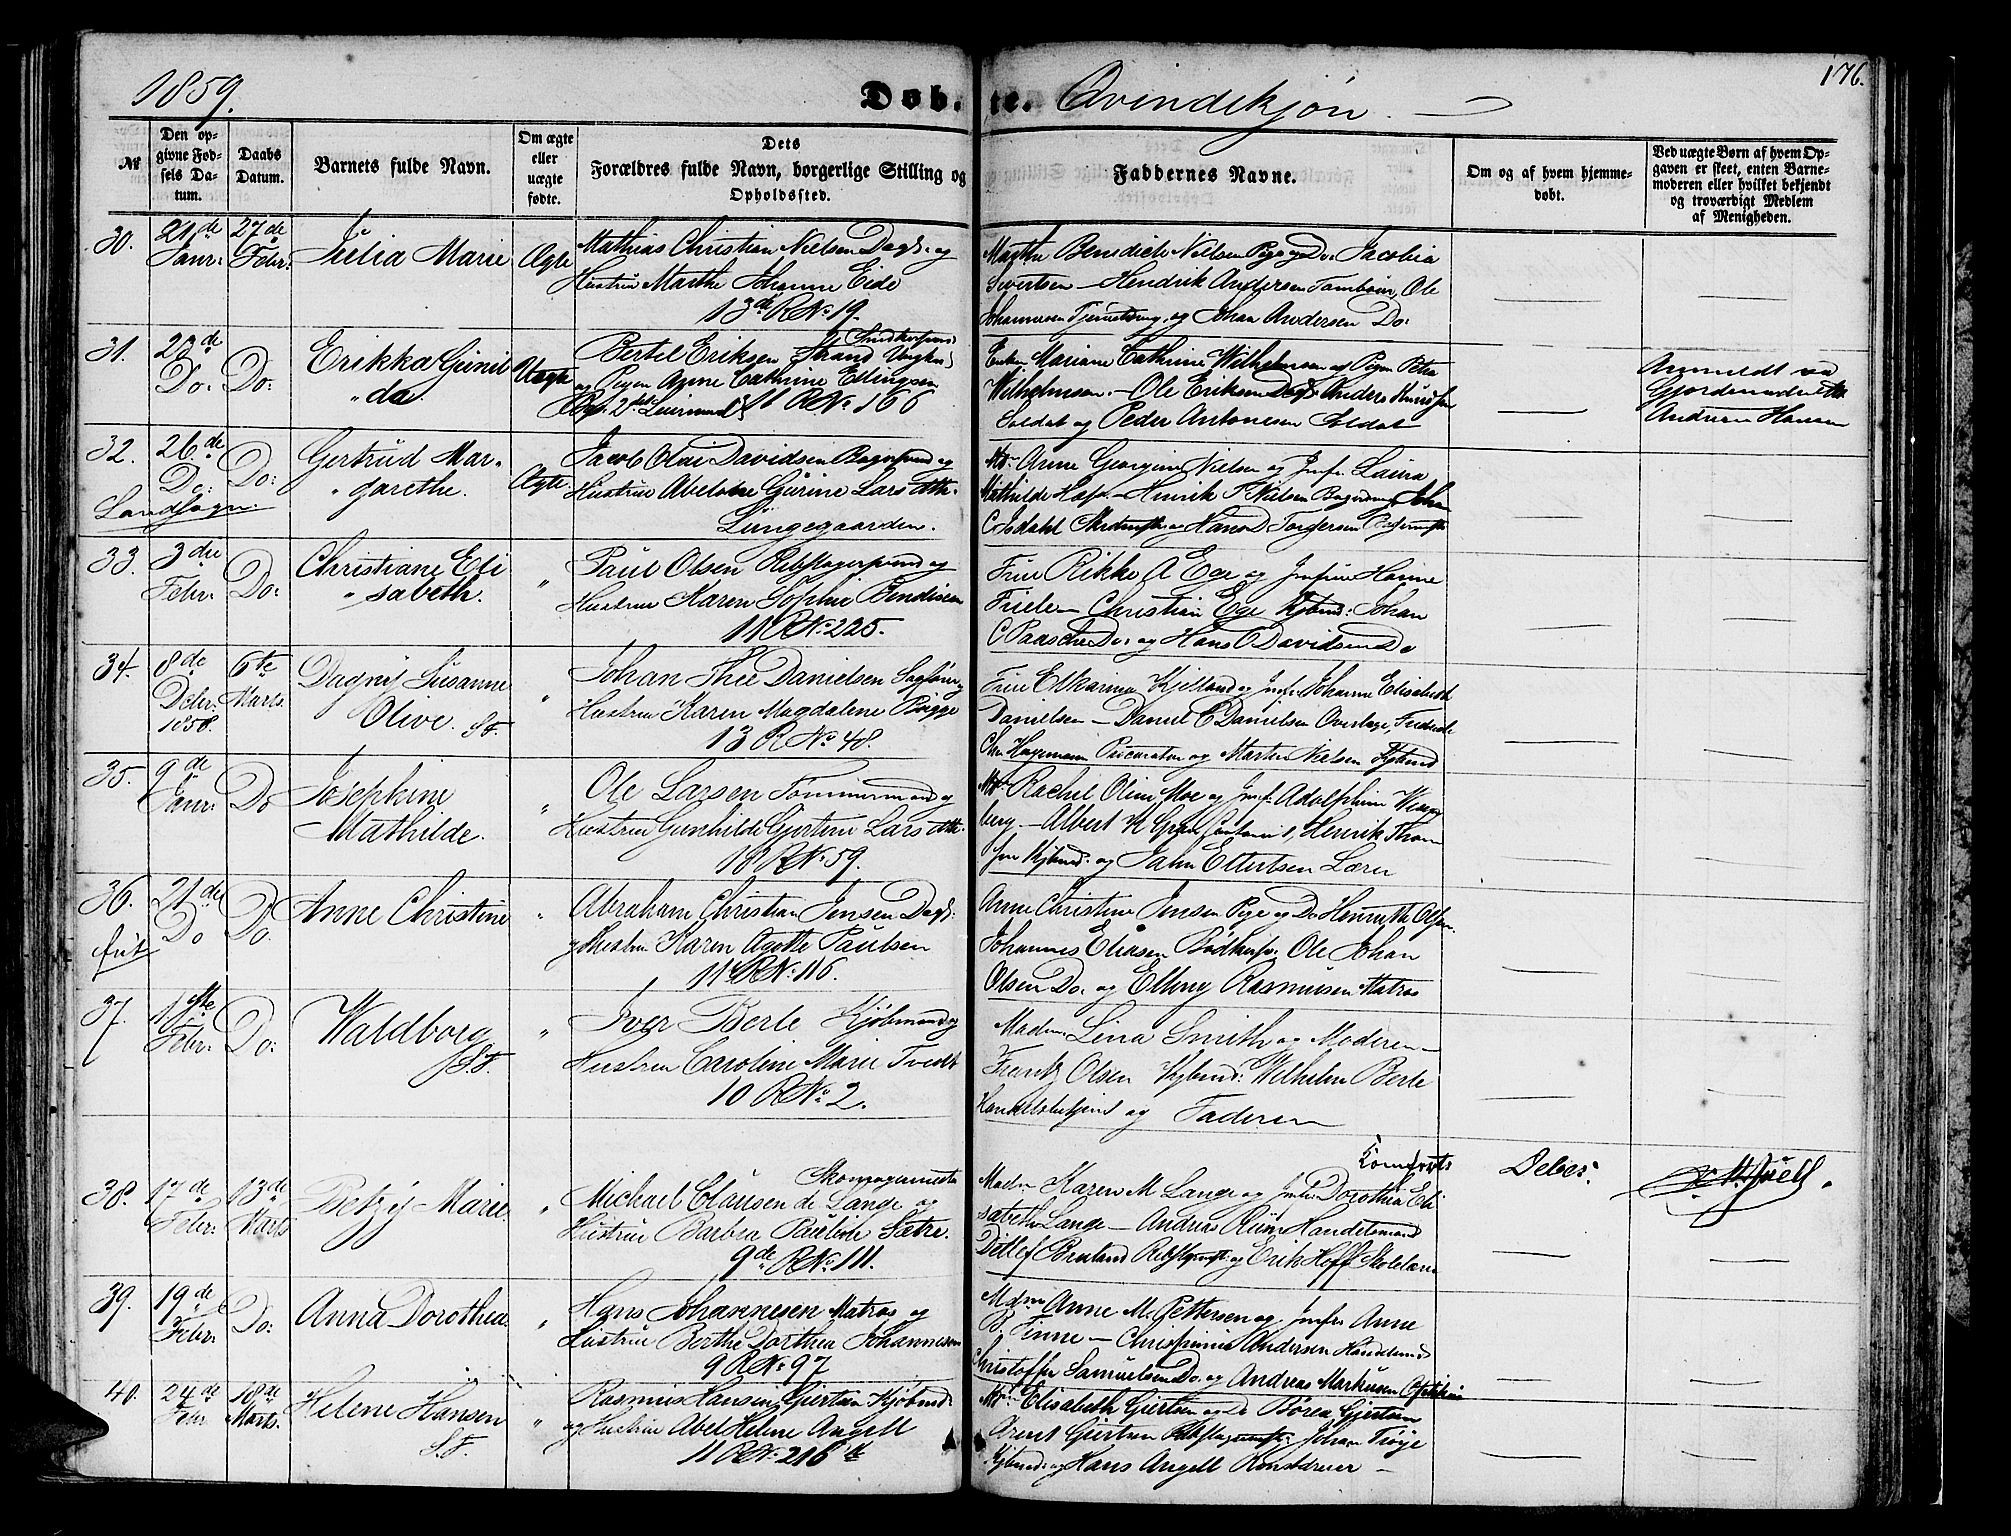 1859.
Døb- te. Qvindekjøn.
176.
№
Den opgivne Fødsels Datum.
Daabs Datum.
Barnets fulde Navn.
Om ægte eller uægte fødte.
Dets Forældres fulde Navn, borgerlige Stilling og Opholdssted.
Faddernes Navne.
Om og af hvem hjemmedøbt.
Ved uægte Børn af hvem Opgaven er skeet, enten Barnemoderen eller hvilket bekjendt og troværdigt Medlem af Menigheden.
30. 21de Janr: 27de Febr: Julia Marie Ægte
Mathias Christian Nielsen Dagk: og
Hustrue Marthe Johanne Eide
13de R No 19.
Marthe Benedicte Nielsen Pige og Do: Jacobia
Sivertsen – Hendrik Andersen Tambour, Ole
Johannesen og Johan Andersen Do:
31. 23de Do: Do: Erikka Gunil
" da. Uægte
Bertel Eriksen Strand Ungk:
og Pigen Anne Cathrine Ellingsen
11 R No 166
Enken Mariane Cathrine Wilhelmsen og Pigen Petra
Wilhelmsen. – Ole Eriksen Dagk: Anders Knudsen
Soldat og Peder Antonesen Soldat
Anmeldt va
Gjordemoder
Andrea Hansen
32. 26de Do: Do: Gertrud Mar-
" garethe. Ægte.
Landsogn:
Jacob Olai Davidsen Bagersvend og
Hustrue Abelone Gurine Larsdtr.
Lungegaarden.
Md: Anne Georgine Nielsen og Jmfr. Laura
Mathilde – Hinrik T Nielsen
og Hans Torgersen
33. 3die Febr: Do: Christiane Eli
" sabeth. "
Paul Olsen Rebslagersvend og
Hustrue Karen Sophie Bendixen
11 R No 225.
Frue Rikke A Ege og Jmfrue Hanne
Friele – Christian Ege Kjbmd: Johan
C Paasche Do: og Hans C Davidsen Do
34. 8de Debr: 1858. 6te Marts Dagny Susanne
Olive. St. "
Johan Thee Danielsen Sagfører og
Hustrue Karen Magdalene Brygge
13 R No 48.
Frue Kjelland og Jmfr Johanne Elisabeth
Danielsen – Daniel C Danielsen Overlæge, Frederik
Chr Hagemann Procurator og Martin Nielsen Kjbmd
35. 9de Janr: Do Josephine
Mathilde. "
Ole Larsen Tømmermand og
Hustrue Gunhilde Gjertine Larsdtr.
18 R No 59.
Md: Rachel Oline Moe og Jmfr: Adolphine Wing
berg. – Albert H Gran, Henrik Thom
sen Kjbmd: og Jahn Ellertsen Lærer
36. 21de Do Do. Anne Christine "
Abraham Christian Jensen Dagk:
og Hustrue Karen Agethe Paulsen
11 R No 116.
Anne Christine Jensen Pige og Do Henriette Olsen.
Johannes Eliasen Ole Johan
Olsen Do: og Elling Rasmusen Matros
37. 11te Febr: Do: Waldborg
St. "
Iver Berle Kjøbmand og
Hustrue Caroline Marie Tvedt
10 R No 2.
Madm: Lina Smith og Moderen –
Frantz Olsen Kjbmd: Wilhelm Berle
Handelsbetjent og Faderen
38. 17de Febr: 13de Marts Betzy Marie. "
Skomagermester
Michael Clausen de Lange og
Hustrue Barbra Pauline Sætre.
9de R No 111.
Madm Karen M Lange og Jmfr: Dorothea Eli
sabeth Lange – Andreas Riim Handelsmand
Ditlef og Erik Hoff Skolelærer
39. 19de Febr: Do: Anna Dorothea. "
Hans Johannesen Matros og
Hustrue Berthe Dorthea Johannesen
9 R No 97
Mdm Anne M. Pettersen og Jmfr. Anne
B Finne – Andersen Handelsmd
Christoffer Samuelsen Do: og Andreas Markusen
40. 24de Febr 18de Marts. Helene Hansen
St. "
Rasmus Hansen Giertsen Kjøbmd:
og Hustrue Abel Helene Angell
11 R No 216
Md: Elisabeth Giertsen og Do Børea Giertsen
Arent Giertsen Johan Trøye
Kjbmd: og Hans Angell